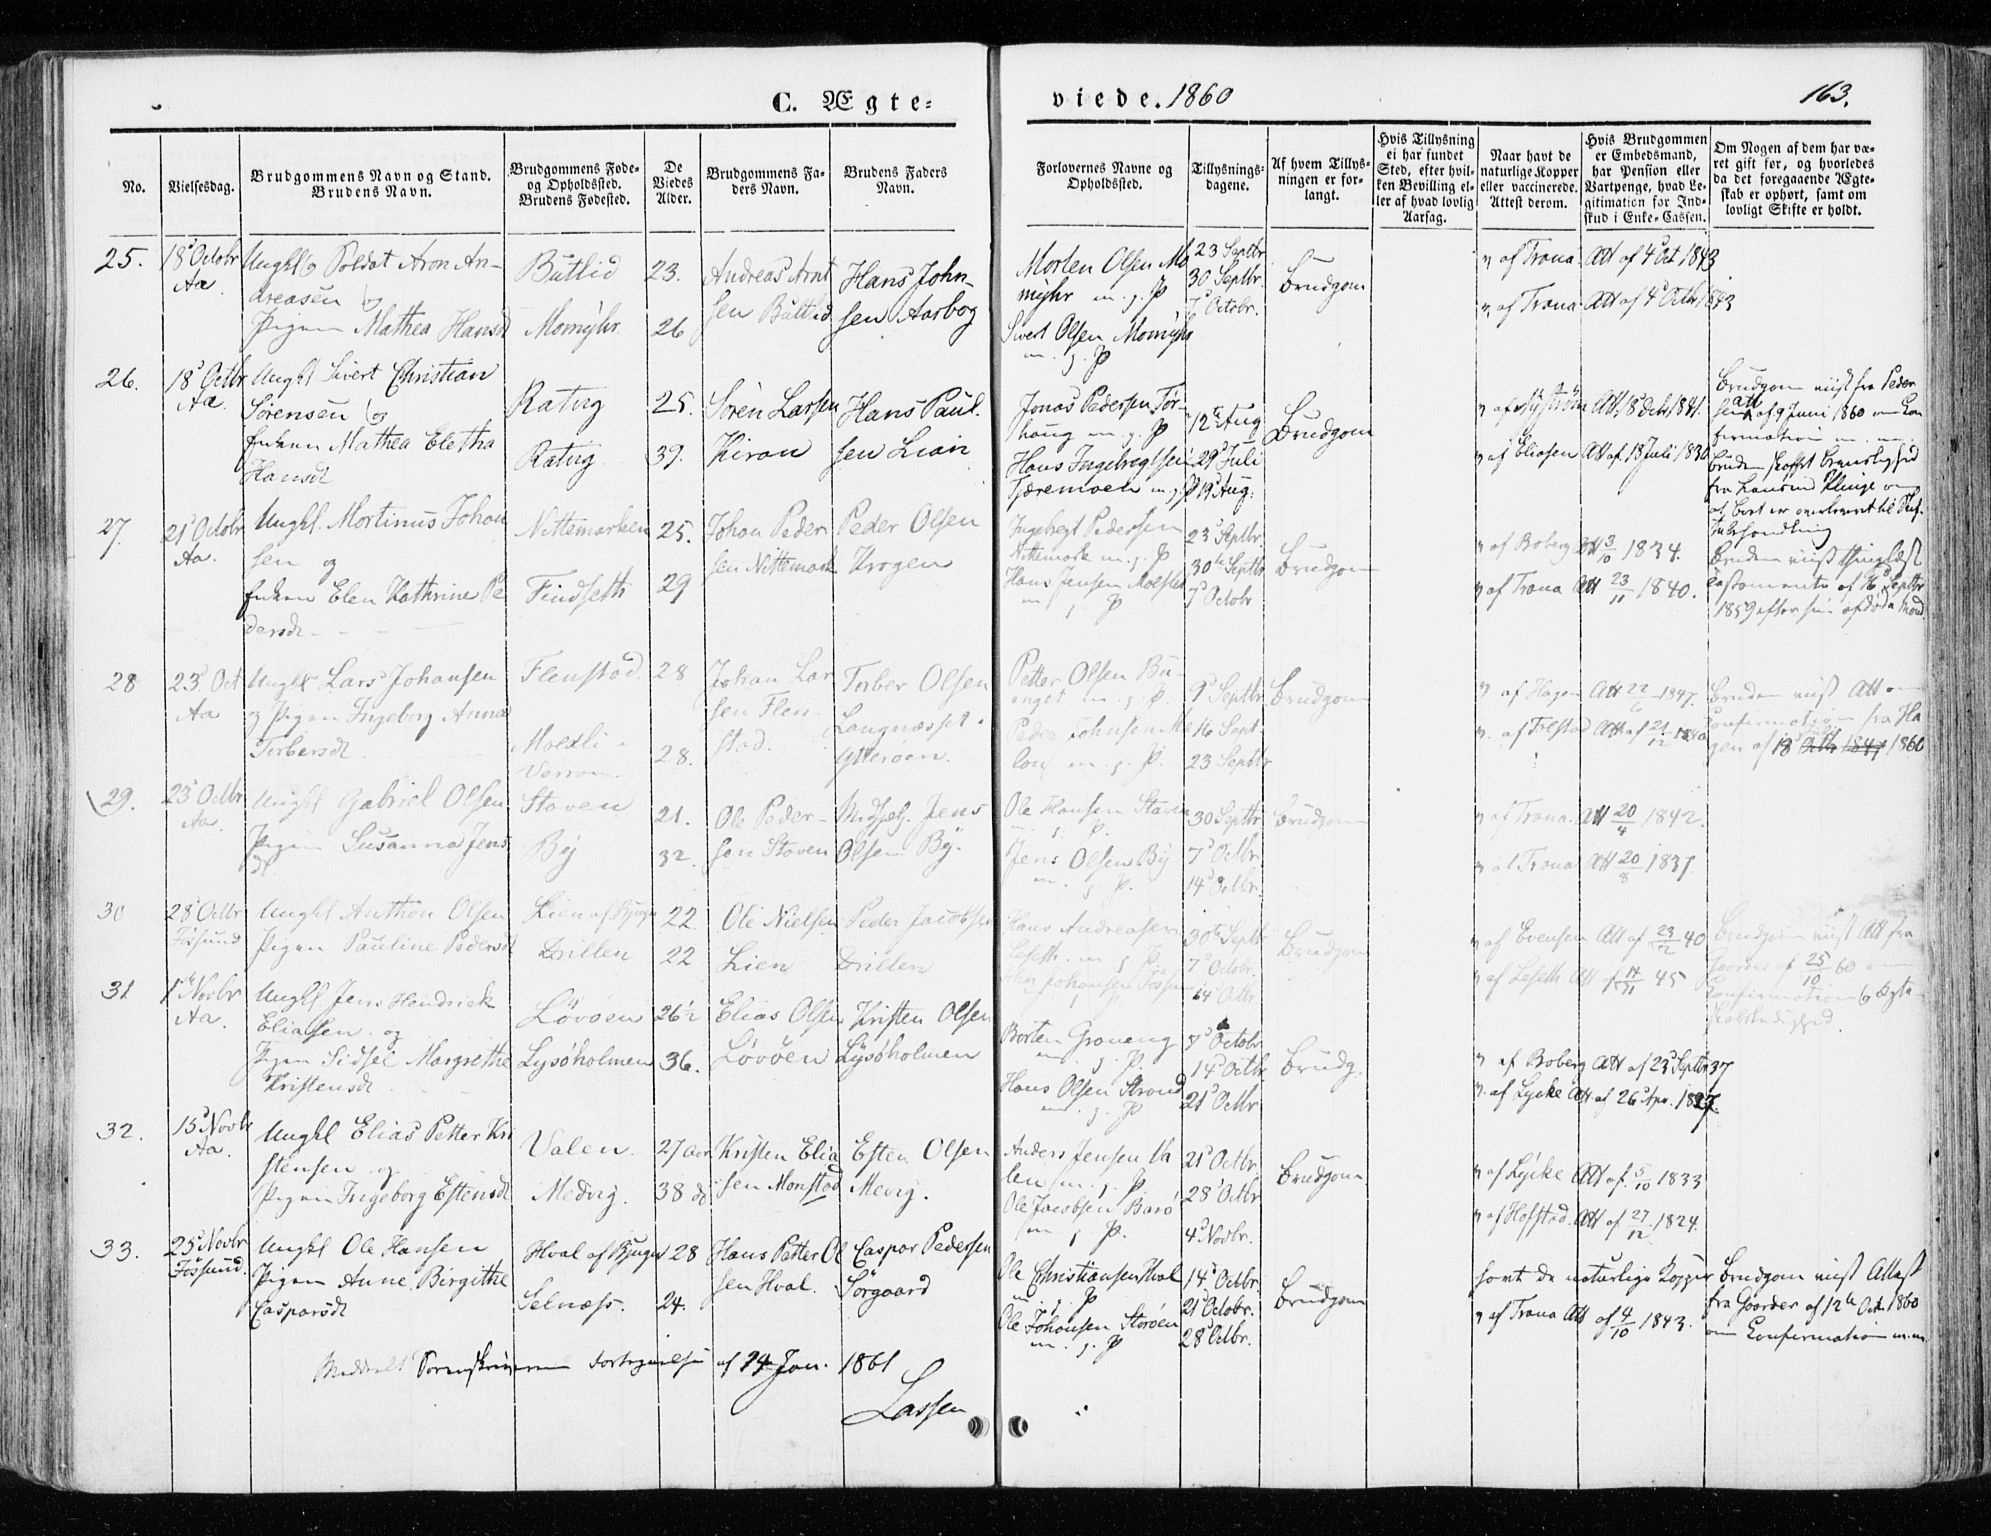 C. Ægte=
viede. 1860
163.
No.
Vielsesdag.
Brudgommens Navn og Stand.
Brudens Navn.
Brudgommens Føde-
og Opholdssted.
Brudens Fødested.
De
Viedes
Alder.
Brudgommens Fa-
ders Navn.
Brudens Faders
Navn.
Forlovernes Navne og
Opholdssted.
Tillysnings-
dagene.
Af hvem Tillys-
ningen er for-
langt.
Hvis Tillysning
ei har fundet
Sted, efter hvil-
ken Bevilling el-
ler af hvad lovlig
Aarsag.
Naar havt de
naturlige Kopper
eller vaccinerede.
Attest derom.
Hvis Brudgommen
er Embedsmand,
har Pension eller
Vartpenge, hvad Le-
gitimation for Ind-
skud i Enke-Cassen.
Om Nogen af dem har væ-
ret gift før, og hvorledes
da det foregaaende Ægte-
skab er ophørt, samt om
lovligt Skifte er holdt.
25.
18 Octobr
Aa.
Ungkl og Soldat Aron An-
dreasen og
Pigen Mathea Hansdt
Butlid
Momyhr.
23.
26
Andreas Arnt
sen Butlid
Hans John-
sen Aarbog
Morten Olsen Mo
myhr m. g. P
Sivert Olsen Momyhr
m. g. P
23 Septbr
30 Septbr.
7 Octobr.
Brudgom
v af Trana Att af 4 Oct 1843
v af Trana Att af 4 Octb 1843
26.
18 Octbr
Aa.
Ungkl Sivert Christian
Sørensen og
Enken Mathea Eletha
Hansdt
Ratvig
Ratvig
25.
39.
Søren Larsen
Kiran
Hans Paul-
sen Lian
Jonas Pedersen Tør-
houg m. g. P
Hans Ingebrigtsen
Tjæremoen m. g. P
12te Aug
29 Juli
19 Aug:
Brudgom
v af Eliasen Att af 18 Juli 1836
Brudgom viist fra Peder
sen Att af 9 Juni 1860 om Con
firmation m. m.
27.
21 Octobr
Aa.
Ungkl. Mortinus Johan
sen og
Enken Elen Kathrine Pe
dersdt
Nittemarken
Findseth
25.
29
Johan Peder
sen Nittemark
Peder Olsen
Krogen
Ingebrgt Pedersen
Nittemark m. g. P
Hans Jensen
m. g. P
23 Septbr.
30te Septbr
7 Octobr
Brudgom
v af Boberg Att 3/10 1834.
v af Trana Att 23/11 1840.
1859 efter sin afdøde Mand.
28
23 Oct
Aa
Ungkl Lars Johansen
og Pigen Ingeborg Anna
Torbersdt
Flenstad.
Moxli
Verran.
28
28.
Johan Lar
sen Flen-
stad.
Torber Olsen
Langnæsset
Ytterøen.
Petter Olsen Bu-
enget m. g. P.
Peder Johnsen
m. g. P.
9 Septbr
16 Sept.
23 Septbr
Brudgom
v af Hagen Att 22/6 1847.
v. af Frestad Att af 21/12 1840
Bruden viist Att om
Confirmation fra Ha
gen af 18 1860
29.
23 Octbr
Aa.
Ungkl Gabriel Olsen
Pigen Susanna Jens
dt.
Staven
By
21.
32.
Ole Peder-
sen Staven
Jens
Olsen By.
Ole Hansen Staven
m. g. P.
Jens Olsen By
m. g. P.
30 Septbr
7 Octbr.
14 Octbr.
Brudgom
v af Trana Att 20/4 1842.
v af Trana Att 20/8 1837.
30
28 Octbr
Føssund
Ungkl Anthon Olsen
Pigen Pauline Pedersdt
Lien af Bjugn
Drillen
22
22
Ole Nielsen
Lien
Peder Jacobsen
Drillen
Hans Andreasen
Leseth. m. g. P.
g. P.
30te Septbr
7 Octobr.
14 Octbr
Brudgom
v af Evensen Att af 23/2 40
v af Leseth Att af 14/11 45
Brudgom viist Att fra
Gaarder af 25/10 60 om
Confirmation og Ægte-
skabsledighed.
31
1 Novbr
Aa.
Ungkl Jens Hendrick
Eliasen og
Pigen Sidsel Margrethe
Kristensdt
Løvøen
Lysøholmen
26½
36.
Elias Olsen
Løvøen
Kristen Olsen
Lysøholmen
Morten Graneng
m. g. P.
Hans Olsen Strand
m. g. P
7 Octobr
14 Octbr.
21 Octbr
Brudg.
v af Boberg Att af 23 Septbr 37
v. af Lycke Att af 26 Apr. 1827.
32.
15 Novbr
Aa.
Ungkl Elias Petter Kri
stensen og
Pigen Ingeborg Estensdt
Valen.
Medvig.
27 aar
38 do
Kristen Elia
sen Monstad
Esten Olsen
Mevig.
Anders Jensen Va
len m. g. P.
Ole Jacobsen Barø
m. g. P.
21 Octbr.
28 Octbr
4 Novbr.
Brudgom
v af Lycke Att af 5/10 1833
v af Hofstad. Att af 27/12 1824.
33.
25 Novbr
Føssund.
Ungkl Ole Hansen
Pigen Anne Birgitthe
Casparsdt
Hval af Bjugn
Selnæss.
28
24.
Hans Petter Ol
sen Hval.
Caspar Pedersen
Sørgaard
Ole Christiansen Hval
m. g. P
Ole Johansen Storøen
m. g. P
14 Octbr.
21 Octobr.
28 Octbr.
Brudgom
havt de naturlige Kopper
v af Trana Att af 4/10 1843.
Brudgom viist Attest
fra Gaarder af 12te Oct. 1860
om Confirmation m.m.
Meddeelt Sorenskriveren Fortegnelse af 14 Jan. 1861
Lassen